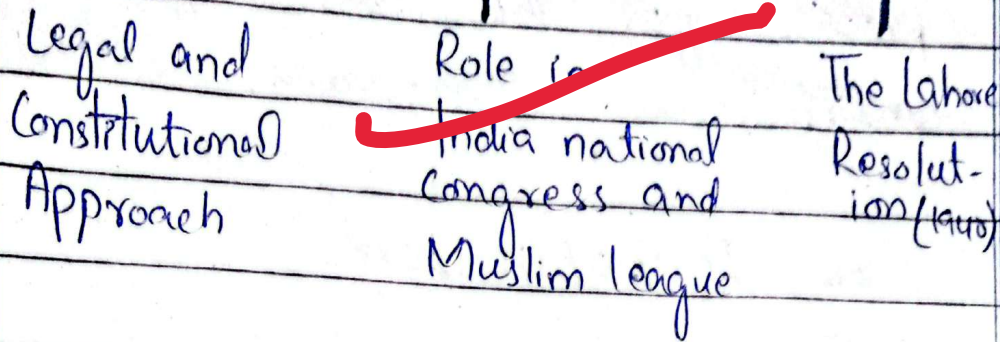 Legal and
Constitutional
Approach
Role in
India national
Congress and
Muslim league
The Lahore
Resolut-
ion (1940)